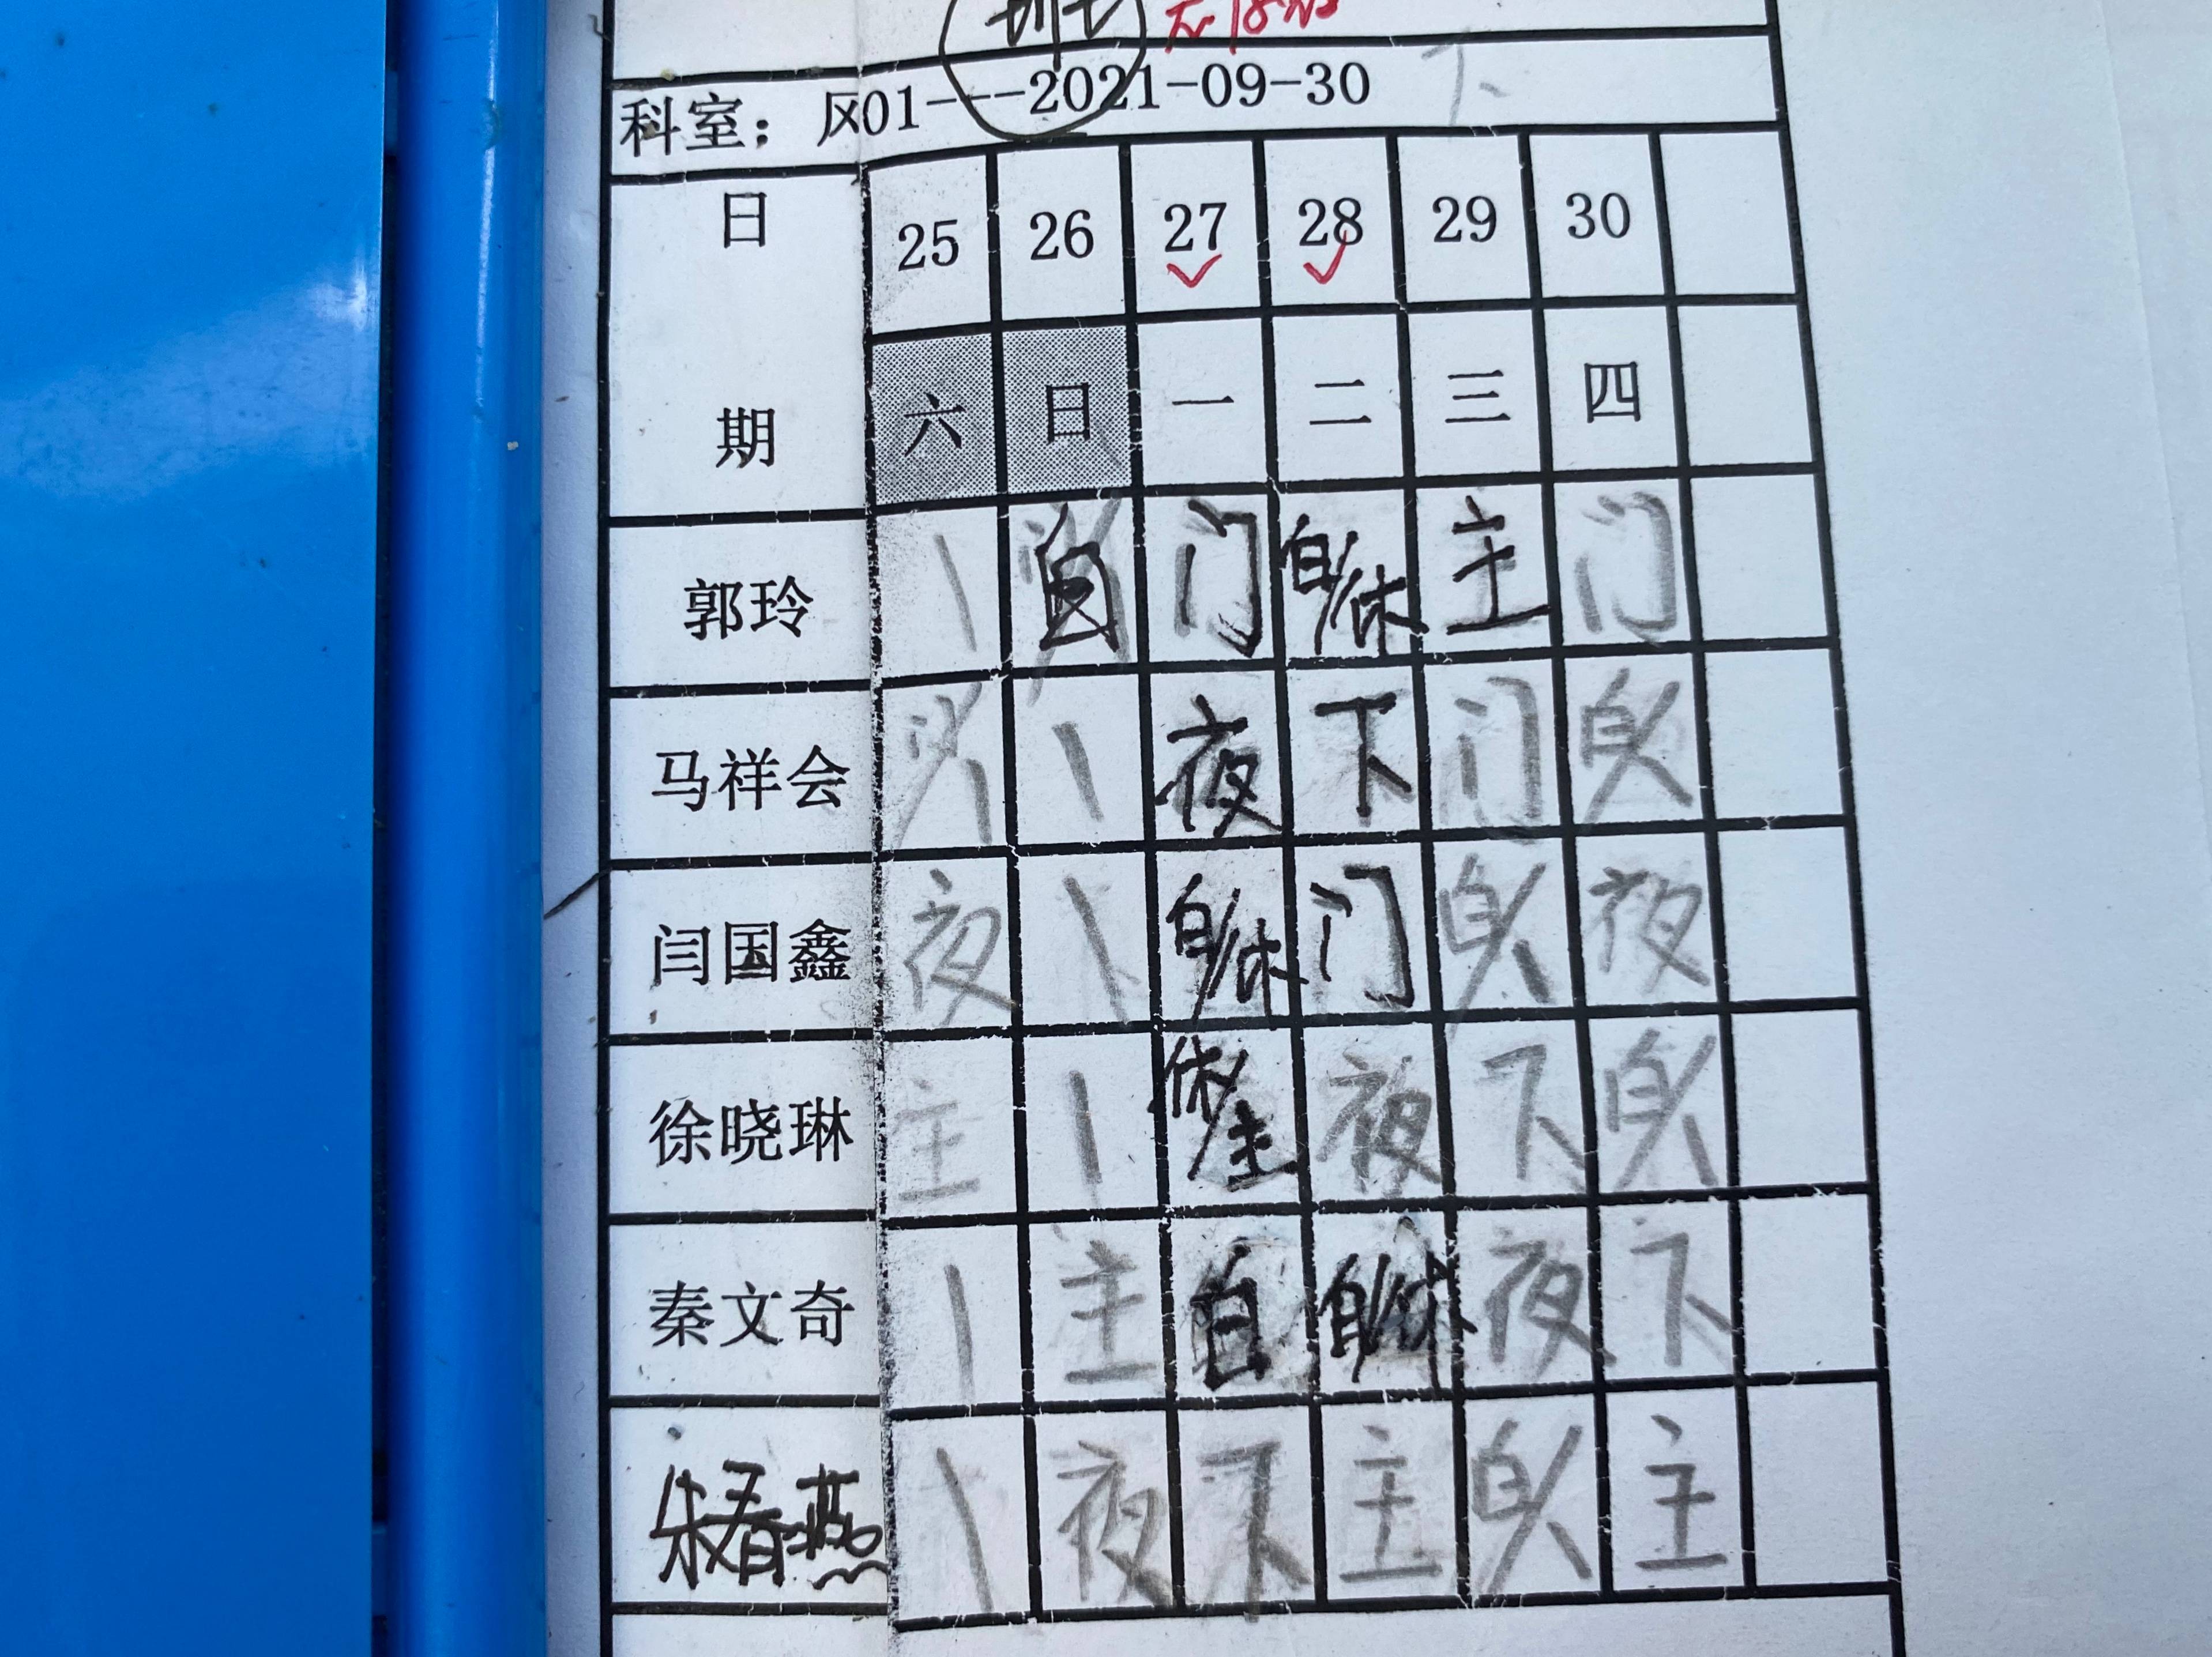 班
科室：风01---2021-09-30 下
日期 25 26 27 28 29 30
六 日 一 二 三 四
郭玲 \ 白 门 白/休 主 门
马祥会 \ \ 夜 下 门 白/\
闫国鑫 夜 \ 白/休 门 白/\ 夜
徐晓琳 主 \ 休/主 夜 下 白/\
秦文奇 \ 主 白 白/休 夜 下
朱春燕 \ 夜 下 主 白/\ 主